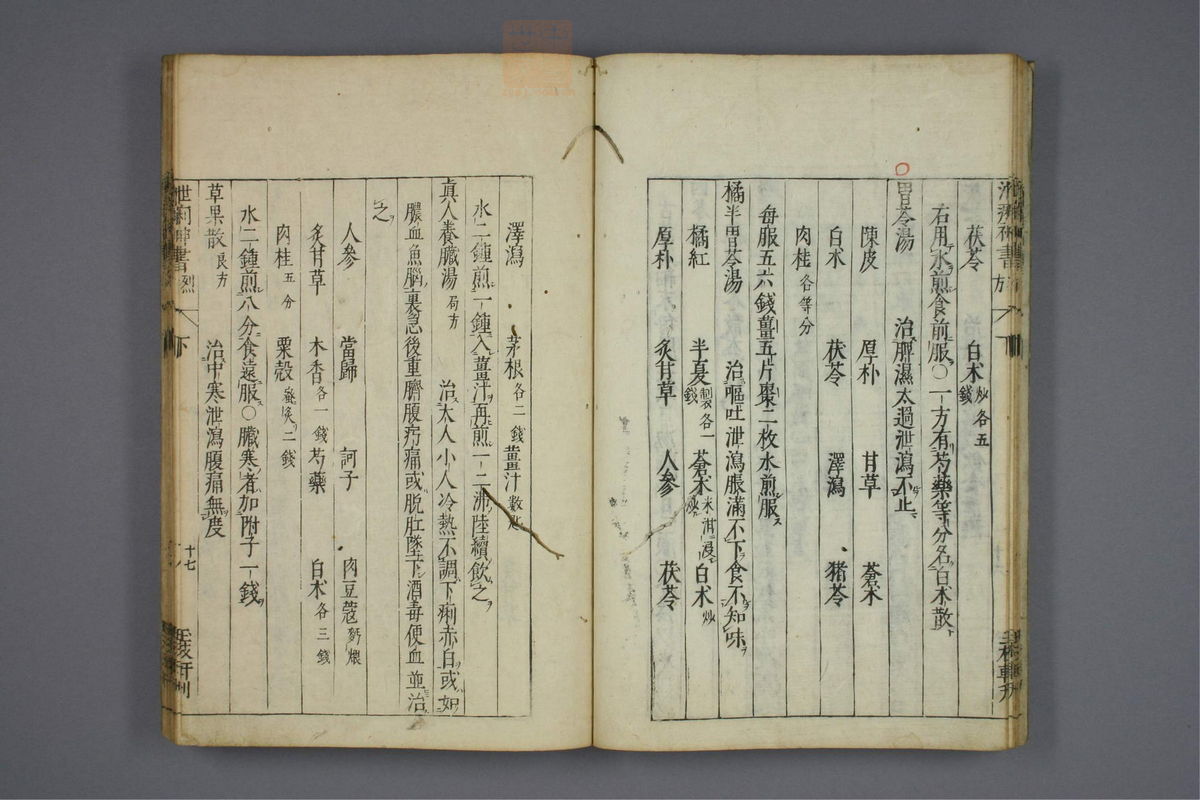 茯苓 白朮炒各五錢
右用水煎食前服○一方有芍藥等分名白朮散
胃苓湯 治脾濕太過泄瀉不止
陳皮 厚朴 甘草 蒼朮
白朮 茯苓 澤瀉 猪苓
肉桂各等分
每服五六錢薑五片棗二枚水煎服
橘半胃苓湯 治嘔吐泄瀉脹滿不下食不知味
橘紅 半夏製各一錢 蒼朮米泔浸炒 白朮炒
厚朴 炙甘草 人参 茯苓
澤瀉 茅根各二錢 薑汁数匙
水二鍾煎一鍾入薑汁再煎一二沸陸續飲之
真人養臟湯局方 治大人小人冷熱不調下痢赤白或如
膿血魚腦裏急後重臍腹㽲痛或脫肛墜下酒毒便血並治
之
人参 當歸 訶子 肉豆蔻麪煨
炙甘草 木香各一錢 芍藥 白朮各三錢
肉桂五分 粟殼蜜炙二錢
水二鍾煎八分食遠服○臟寒者加附子一錢
草果散良方 治中寒泄瀉腹痛無度
十七